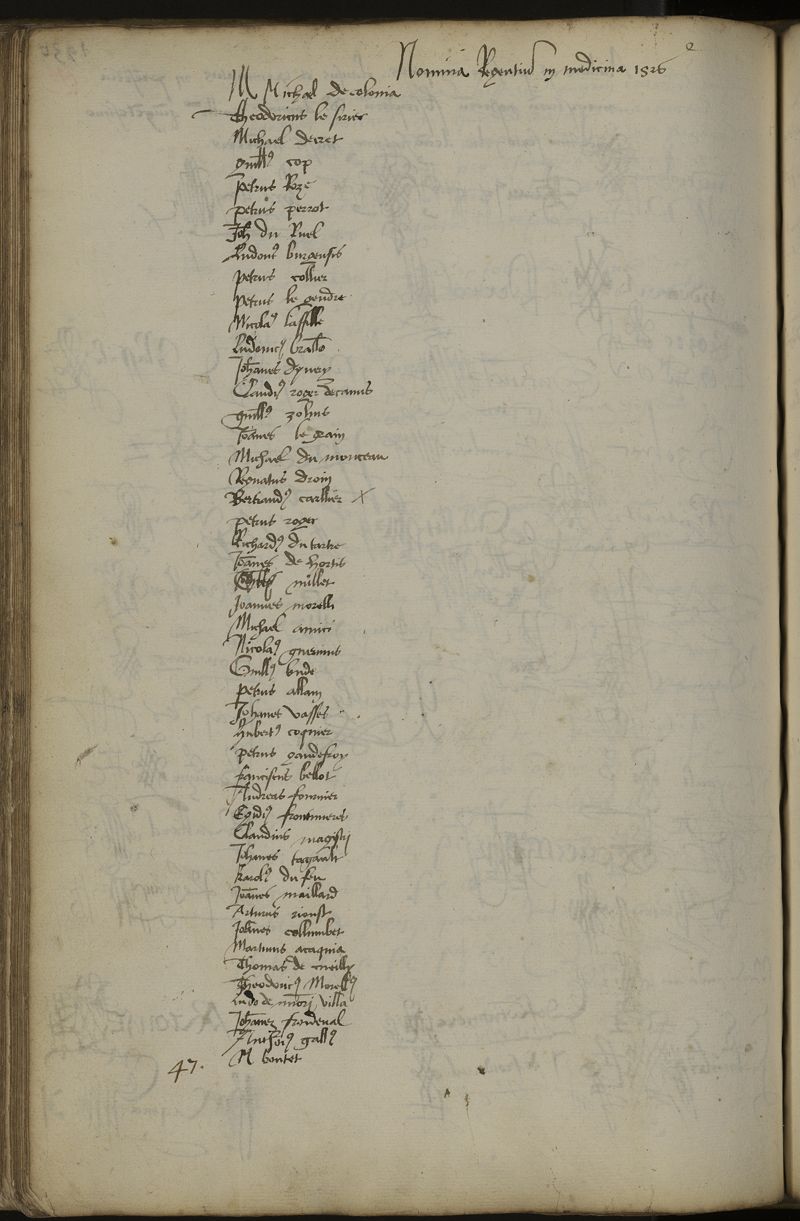 Nomina Regentium in medicina 1526
M Michael de colonia
Theodoricus le sirier
Michael decret
Guillus cop
petrus Roze
petrus perrot
Joh du Ruel
Ludovicus burgensis
petrus collier
petrus le gendre
Nicolaus laffille
Ludovicus braillo
Johanes dyvery
Claudius roger decanus
guillus
Joanes le grain
Michael du monceau
Renatus droin
Bertrandus carllier X
petrus roger
Richardus du tartre
Joanes de hortis
millet
Joannes morelli
Michael amici
Nicolaus
Guillus bude
petrus allain
Johanes vasses
hubertus coquier
petrus gaudefroy
franciscus bellot
Andreas fournier
Egidius
Claudius magistri
Johanes tagault
karolus du feu
Joanes maillard
Arturus
Johanes collumbet
Martinus acaquia
Thomas de
Theodoricus Morellus
Ludo de villa
Johanes froideval
Anthonius gallus
M bontet
47.